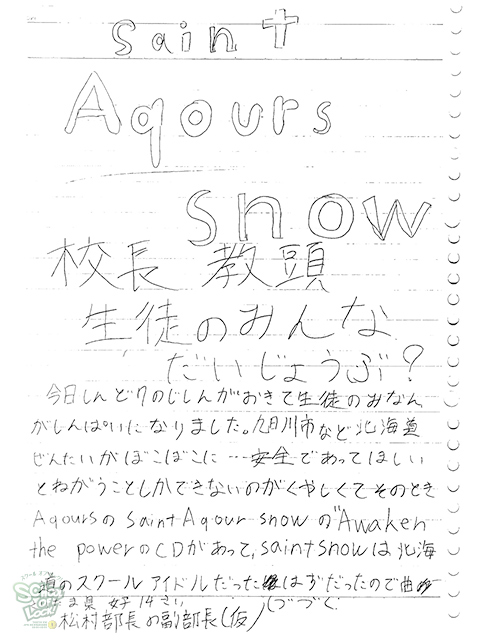 saint
Aqours
snow
校長 教頭
生徒のみんな
だいじょうぶ?
今日しんど7のじしんがおきて生徒のみなん
がしんぱいになりました。旭川市など北海道
ぜんたいがぼこぼこに…安全であってほしい
とねがうことしかできないのがくやしくてそのとき
Aqoursの saint Aqour snow の"Awaken
the powerのCDがあって,saint snowは北海
道のスクールアイドルだったはずだったので曲
県 女子 14さい (つづく
松村部長の副部長(仮)